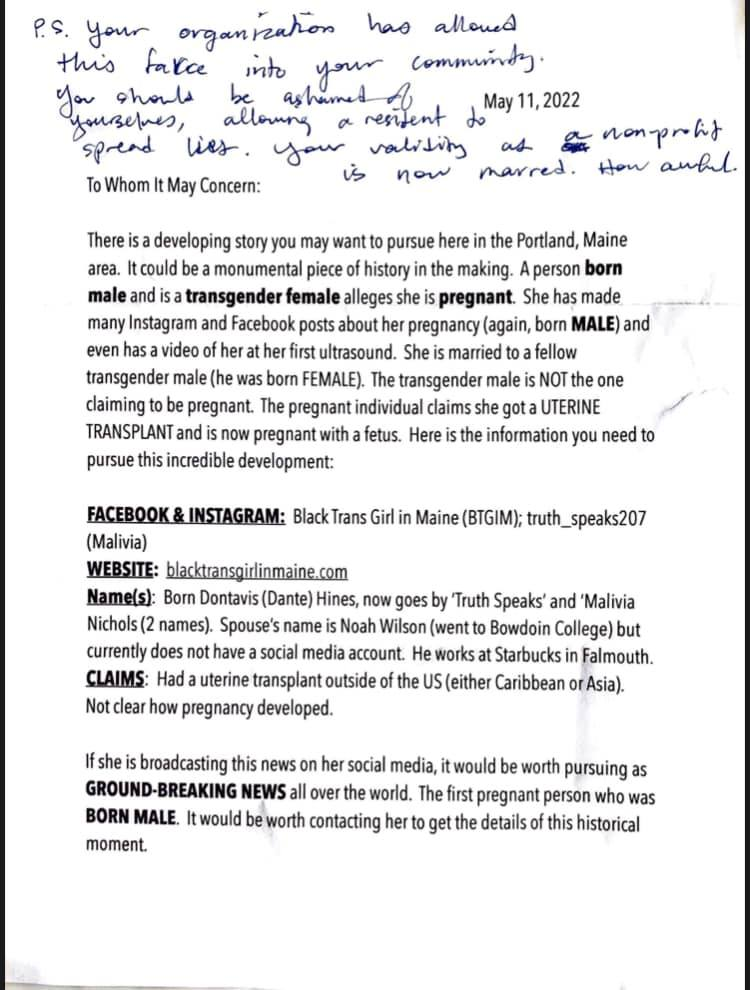 P.S. Your organization has allowed
this farce into your community.
You should be ashamed of
May 11, 2022
yourselves, allowing a resident to
spread lies. Your validity as a non-profit
is now marred. How awful.
To Whom It May Concern:
There is a developing story you may want to pursue here in the Portland, Maine
area. It could be a monumental piece of history in the making. A person born
male and is a transgender female alleges she is pregnant. She has made
many Instagram and Facebook posts about her pregnancy (again, born MALE) and
even has a video of her at her first ultrasound. She is married to a fellow
transgender male (he was born FEMALE). The transgender male is NOT the one
claiming to be pregnant. The pregnant individual claims she got a UTERINE
TRANSPLANT and is now pregnant with a fetus. Here is the information you need to
pursue this incredible development:
FACEBOOK & INSTAGRAM: Black Trans Girl in Maine (BTGIM); truth_speaks207
(Malivia)
WEBSITE: blacktransgirlinmaine.com
Name(s): Born Dontavis (Dante) Hines, now goes by 'Truth Speaks' and 'Malivia
Nichols (2 names). Spouse's name is Noah Wilson (went to Bowdoin College) but
currently does not have a social media account. He works at Starbucks in Falmouth.
CLAIMS: Had a uterine transplant outside of the US (either Caribbean or Asia).
Not clear how pregnancy developed.
If she is broadcasting this news on her social media, it would be worth pursuing as
GROUND-BREAKING NEWS all over the world. The first pregnant person who was
BORN MALE. It would be worth contacting her to get the details of this historical
moment.